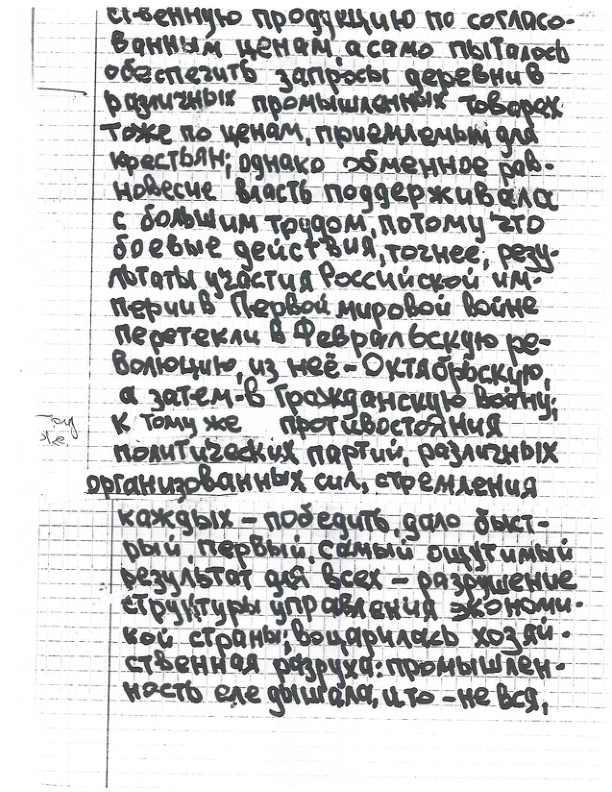 ственную продукцию по согласо-
ванным ценам, а само пыталось
обеспечить запросы деревни в
различных промышленных товарах
тоже по ценам, приемлемым для
крестьян; однако обменное рав-
новесие власть поддерживала
с большим трудом, потому что
боевые действия, точнее, резу-
льтаты участия Российской им-
перии в Первой мировой войне
перетекли в Февральскую ре-
волюцию, из неё - Октябрьскую,
а затем - в Гражданскую войну;
к тому же противостояния
политических партий, различных
организованных сил, стремления
каждых - победить, дало быст-
рый, первый, самый ощутимый
результат для всех - разрушение
структуры управления экономи-
кой страны; воцарилась хозяй-
ственная разруха: промышлен-
ность еле дышала, и то - не вся,